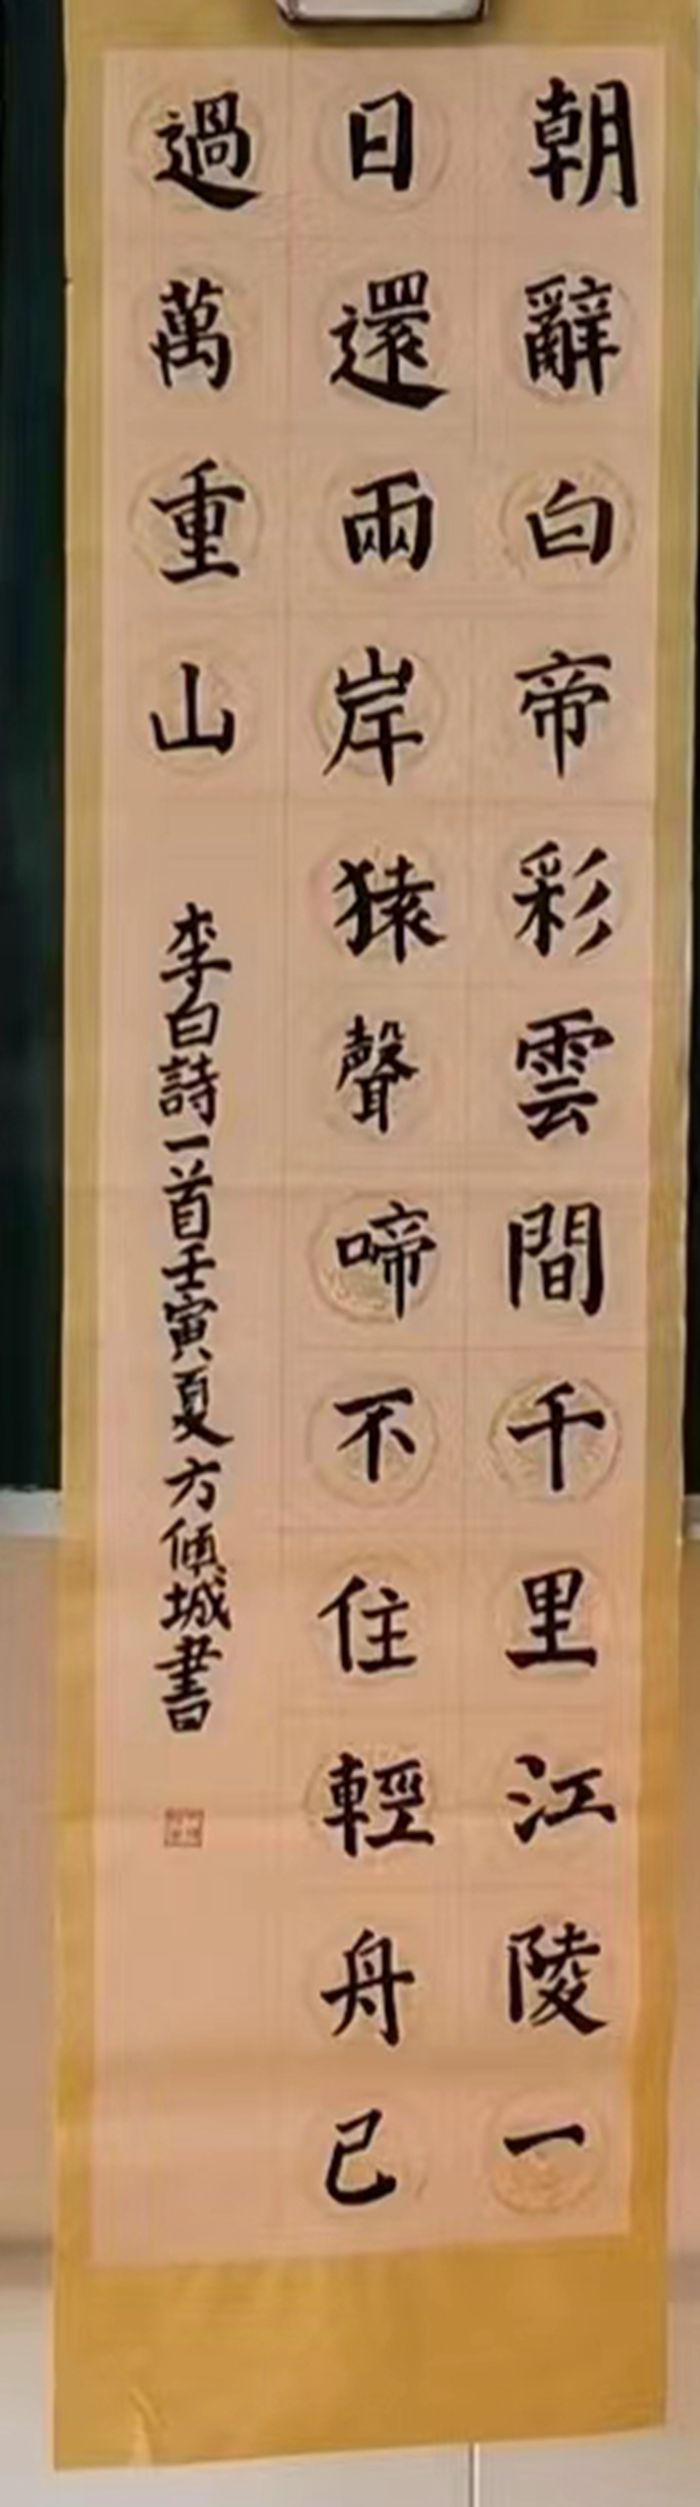 朝辭白帝彩雲間千里江陵一
日還兩岸猿聲啼不住輕舟已
過萬重山
李白詩一首壬寅夏方傾城書